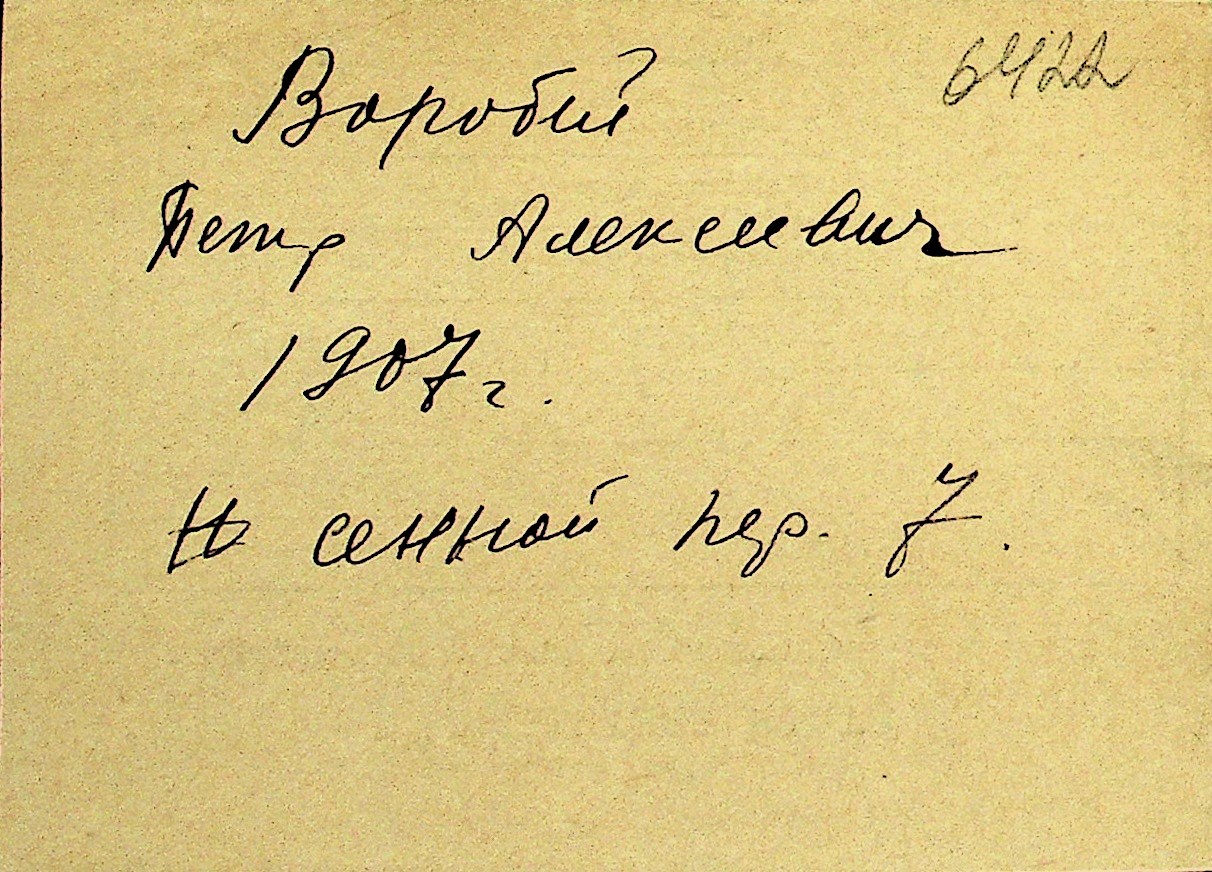 6422
Воробий
Петр Алексеевич
1907 г.
Н сенной пер. 7.